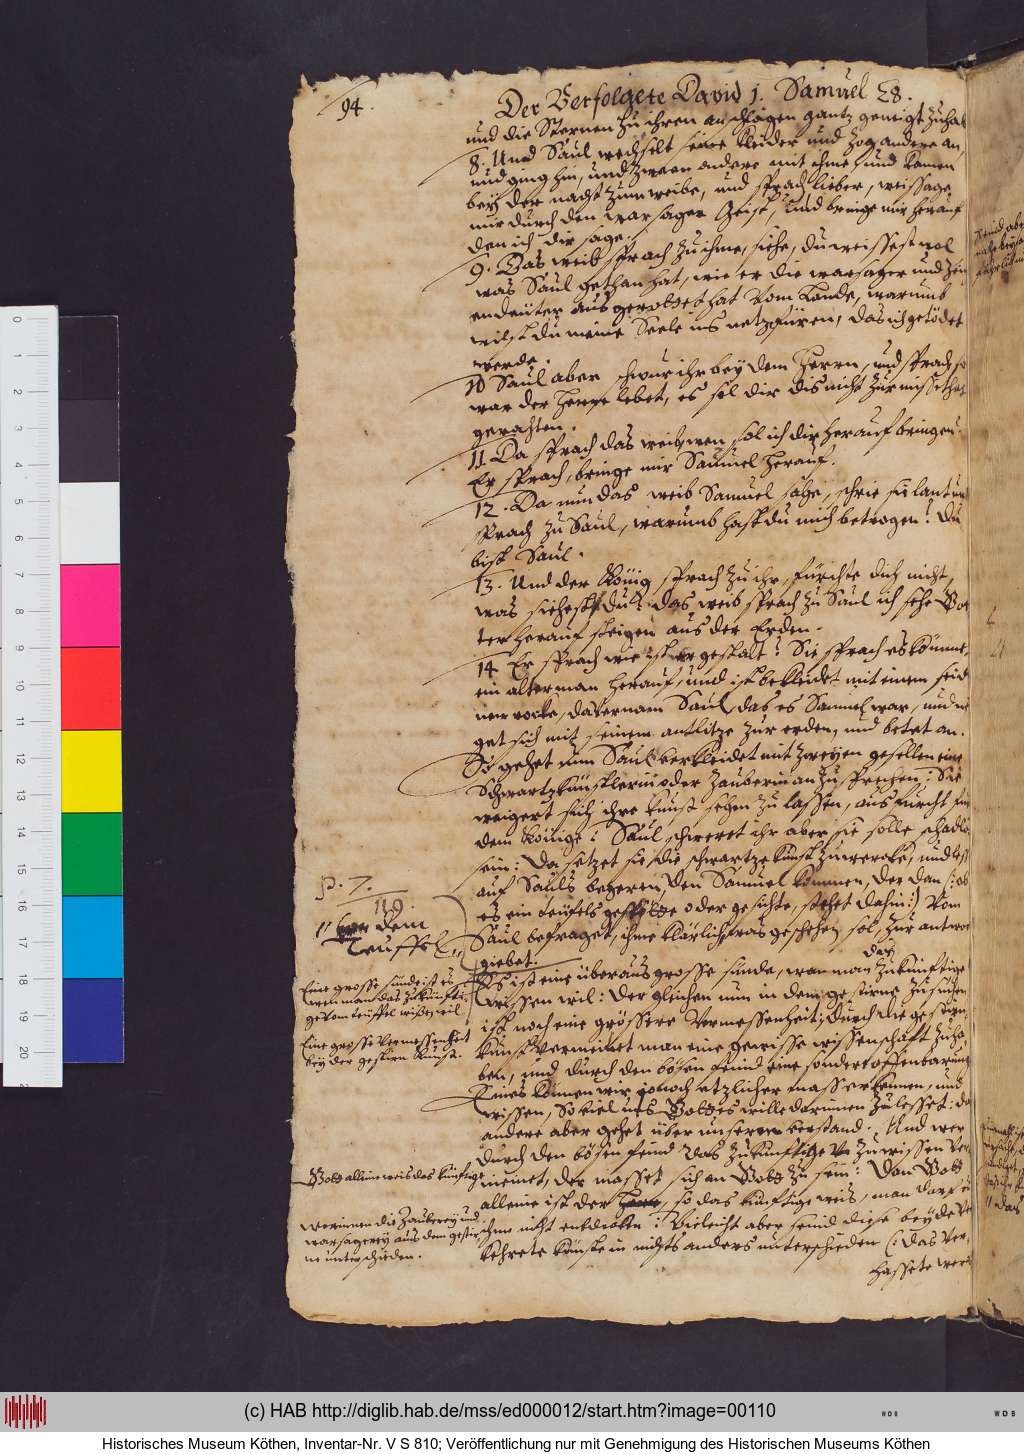 94.
Der Verfolgete David 1. Samuel 28.
und die Sternen zu ihren anschlägen gantz geneigt zuhab
8. Und Saul wechselt seine kleider und zog andere an,
und ging hin, und zween andere mit ihme, und kamen
bey der nacht zum weibe, und sprach lieber, weissage
mir durch den warsager Geist, und bringe mir herauf
den ich dir sage.
9. Das weib sprach zu ihme, siehe, du weissest wol
was Saul gethan hat, wie er die warsager und zei
endeüter ausgerottet hat vom Lande, warumb
wilst du meine Seele ins netz füren, das ich getödet
werde.
10 Saul aber schwur ihr bey dem Herrn, und sprach, so
war der Herre lebet, es sol dir dis nicht zur missethat
gerahten.
11. Da sprach das weib, wen sol ich dir herauf bringen.
Er sprach, bringe mir Samuel herauf.
12. Da nun das weib Samuel sahe, schrie sie laut und
sprach zu Saul, warumb hast du mich betrogen? Du
bist Saul.
13. Und der König sprach zu ihr, fürchte dich nicht,
was siehest du? das weib sprach zu Saul ich sehe Göt
ter herauf steigen aus der Erden.
14 Er sprach wie ist er gestalt? Sie sprach es kömmet
ein alter man herauf, und ist bekleidet mit einem seid
nen rocke, da vernam Saul, das es Samuel war, und nei
get sich mit seinem antlitze zur erden, und betet an.
So gehet nun Saul verkleidet mit zweyen gesellen eine
Schwartzkünstlerin oder Zauberin anzusprechen: Sie
weigert sich ihre kunst sehen zu lassen, aus furcht für
dem Könige: Saul schweret ihr aber sie solle schadlos
sein: Da setzet sie die schwartze kunst zu wercke, und lest
auf Sauls begeren, den Samuel kommen, der dan (: ob
es ein teüfels gespötte oder gesichte, stehet dahin:) Vom
Saul befraget, ihme klärlich, was geschehen sol, zur antwort
giebet.
p. 7.
119.
Von dem
Teuffel
das
Es ist eine überaus grosse sünde, wan man zukünftige
wissen wil: Der gleichen nun in dem gestirne zu suchen
ist noch eine grössere Vermessenheit; durch die gestirn
kunst vermeinet man eine gewisse wissenschaft zuha
ben, und durch den bösen feind eine sonder offenbarung
Eines können wir jo noch etzlicher masse erkennen, und
wissen, So viel uns Gottes wille darinnen zulesset: das
andere aber gehet über unseren verstand. Und wer
durch den bösen feind das zukünftige zu wissen ver
meinet, der masset sich an Gott zu sein: Dan Gott
alleine ist der Herre, so das künftige weis, man darf es
ihm nicht entdecken: Vieleicht aber seind diese beyde ver
kehrete künste in nichts anders unterschieden (: das ver
hassete wer
Eine grosse sünde ist es
wen man das zukünfti
ge vom teüffel wissen wil
Eine grosse vermessenheit
bey der gestirn kunst.
Gott allein weis das künftige
Worinnen die Zauberey und
warsagerey aus dem gestir
ne unterschieden.
0 1 2 3 4 5 6 7 8 9 10 11 12 13 14 15 16 17 18 19 20
(c) HAB http://diglib.hab.de/mss/ed000012/start.htm?image=00110
WDB
WDB
Historisches Museum Köthen, Inventar-Nr. V S 810; Veröffentlichung nur mit Genehmigung des Historischen Museums Köthen